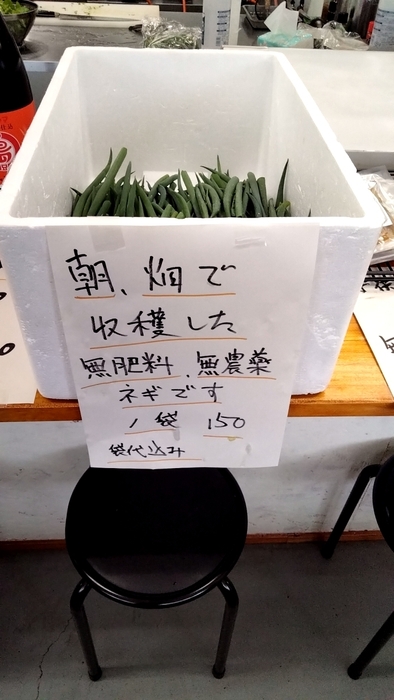 朝、畑で
収穫した
無肥料、無農薬
ネギです
1袋 150
袋代込み